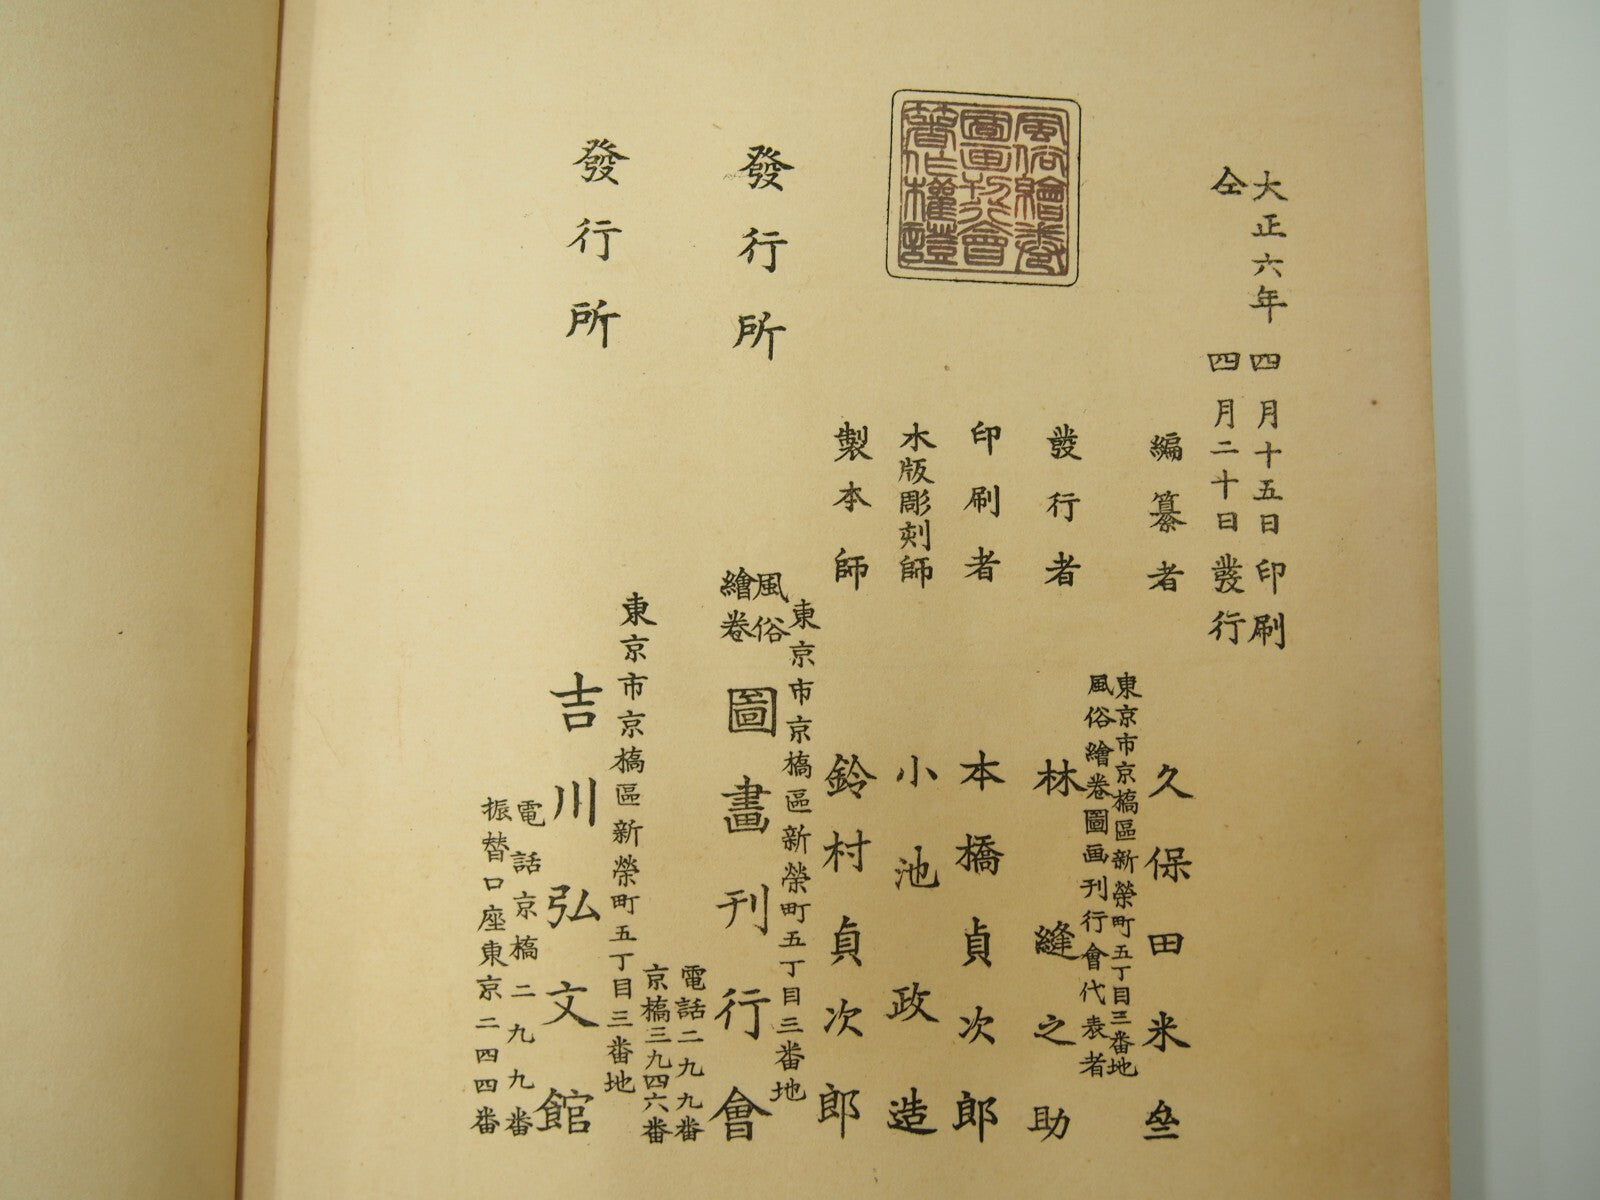 大正六年四月十五日印刷
仝四月二十日發行
編纂者
久保田米㕘
東京市京橋區新榮町五丁目三番地
風俗繪卷圖画刊行會代表者
發行者
林縫之助
印刷者
本橋貞次郎
木版彫刻師
小池政造
製本師
鈴村貞次郎
風俗繪卷
圖画刊行會
著作權證
發行所
東京市京橋區新榮町五丁目三番地
風俗
繪卷
圖畫刊行會
電話二九九番
京橋三九四六番
發行所
東京市京橋區新榮町五丁目三番地
吉川弘文館
電話京橋二九九番
振替口座東京二四四番